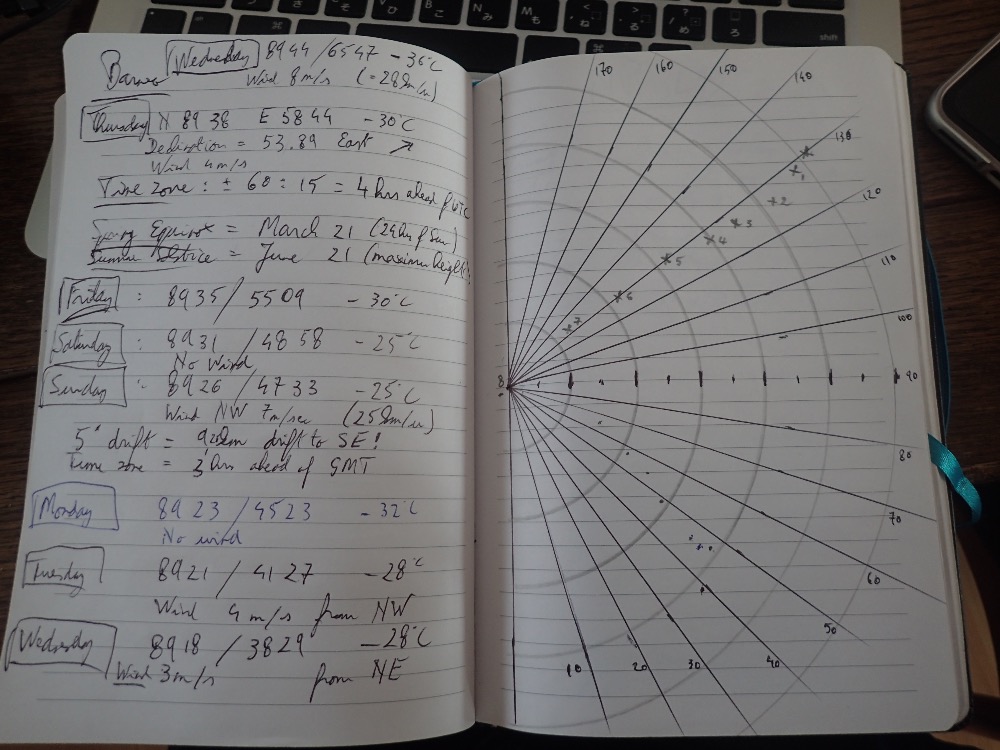 Barneo Wednesday 8944 / 6547 -36°C
Wind 8m/s (= 28km/u)
Thursday N 89 38 E 58 44 -30°C
Declination = 53.89 East ↗
Wind 4m/s
Time zone : ± 60 : 15 = 4 hrs ahead of UTC
Spring Equinox = March 21 (24hrs of Sun)
Summer Solstice = June 21 (maximum height)
Friday : 8935 / 5509 -30°C
Saturday : 8931 / 4858 -25°C
No Wind
Sunday :- 8926 / 4733 -25°C
Wind NW 7m/sec (25km/u)
5° drift = drift to SE!
Time zone = 3 hrs ahead of GMT
Monday 8923 / 4523 -32°C
No wind
Tuesday 8921 / 4127 -28°C
Wind 4 m/s from NW
Wednesday 8918 / 3829 -28°C
Wind 3m/s from NE
170 160 150 140
130
x1
120
x2
x3
x4
110
x5
x6
100
x7
90
80
70
60
50
10 20 30 40
shift